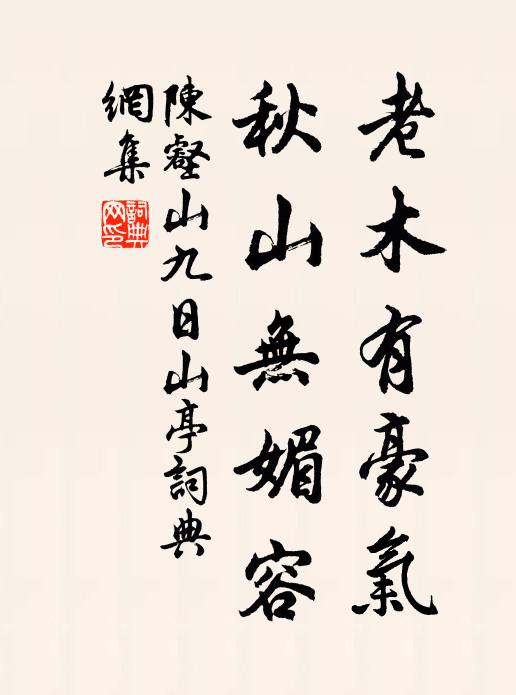 老木有豪氣
秋山無媚容
陳壑山九日山亭詞典
網集
詞典網印